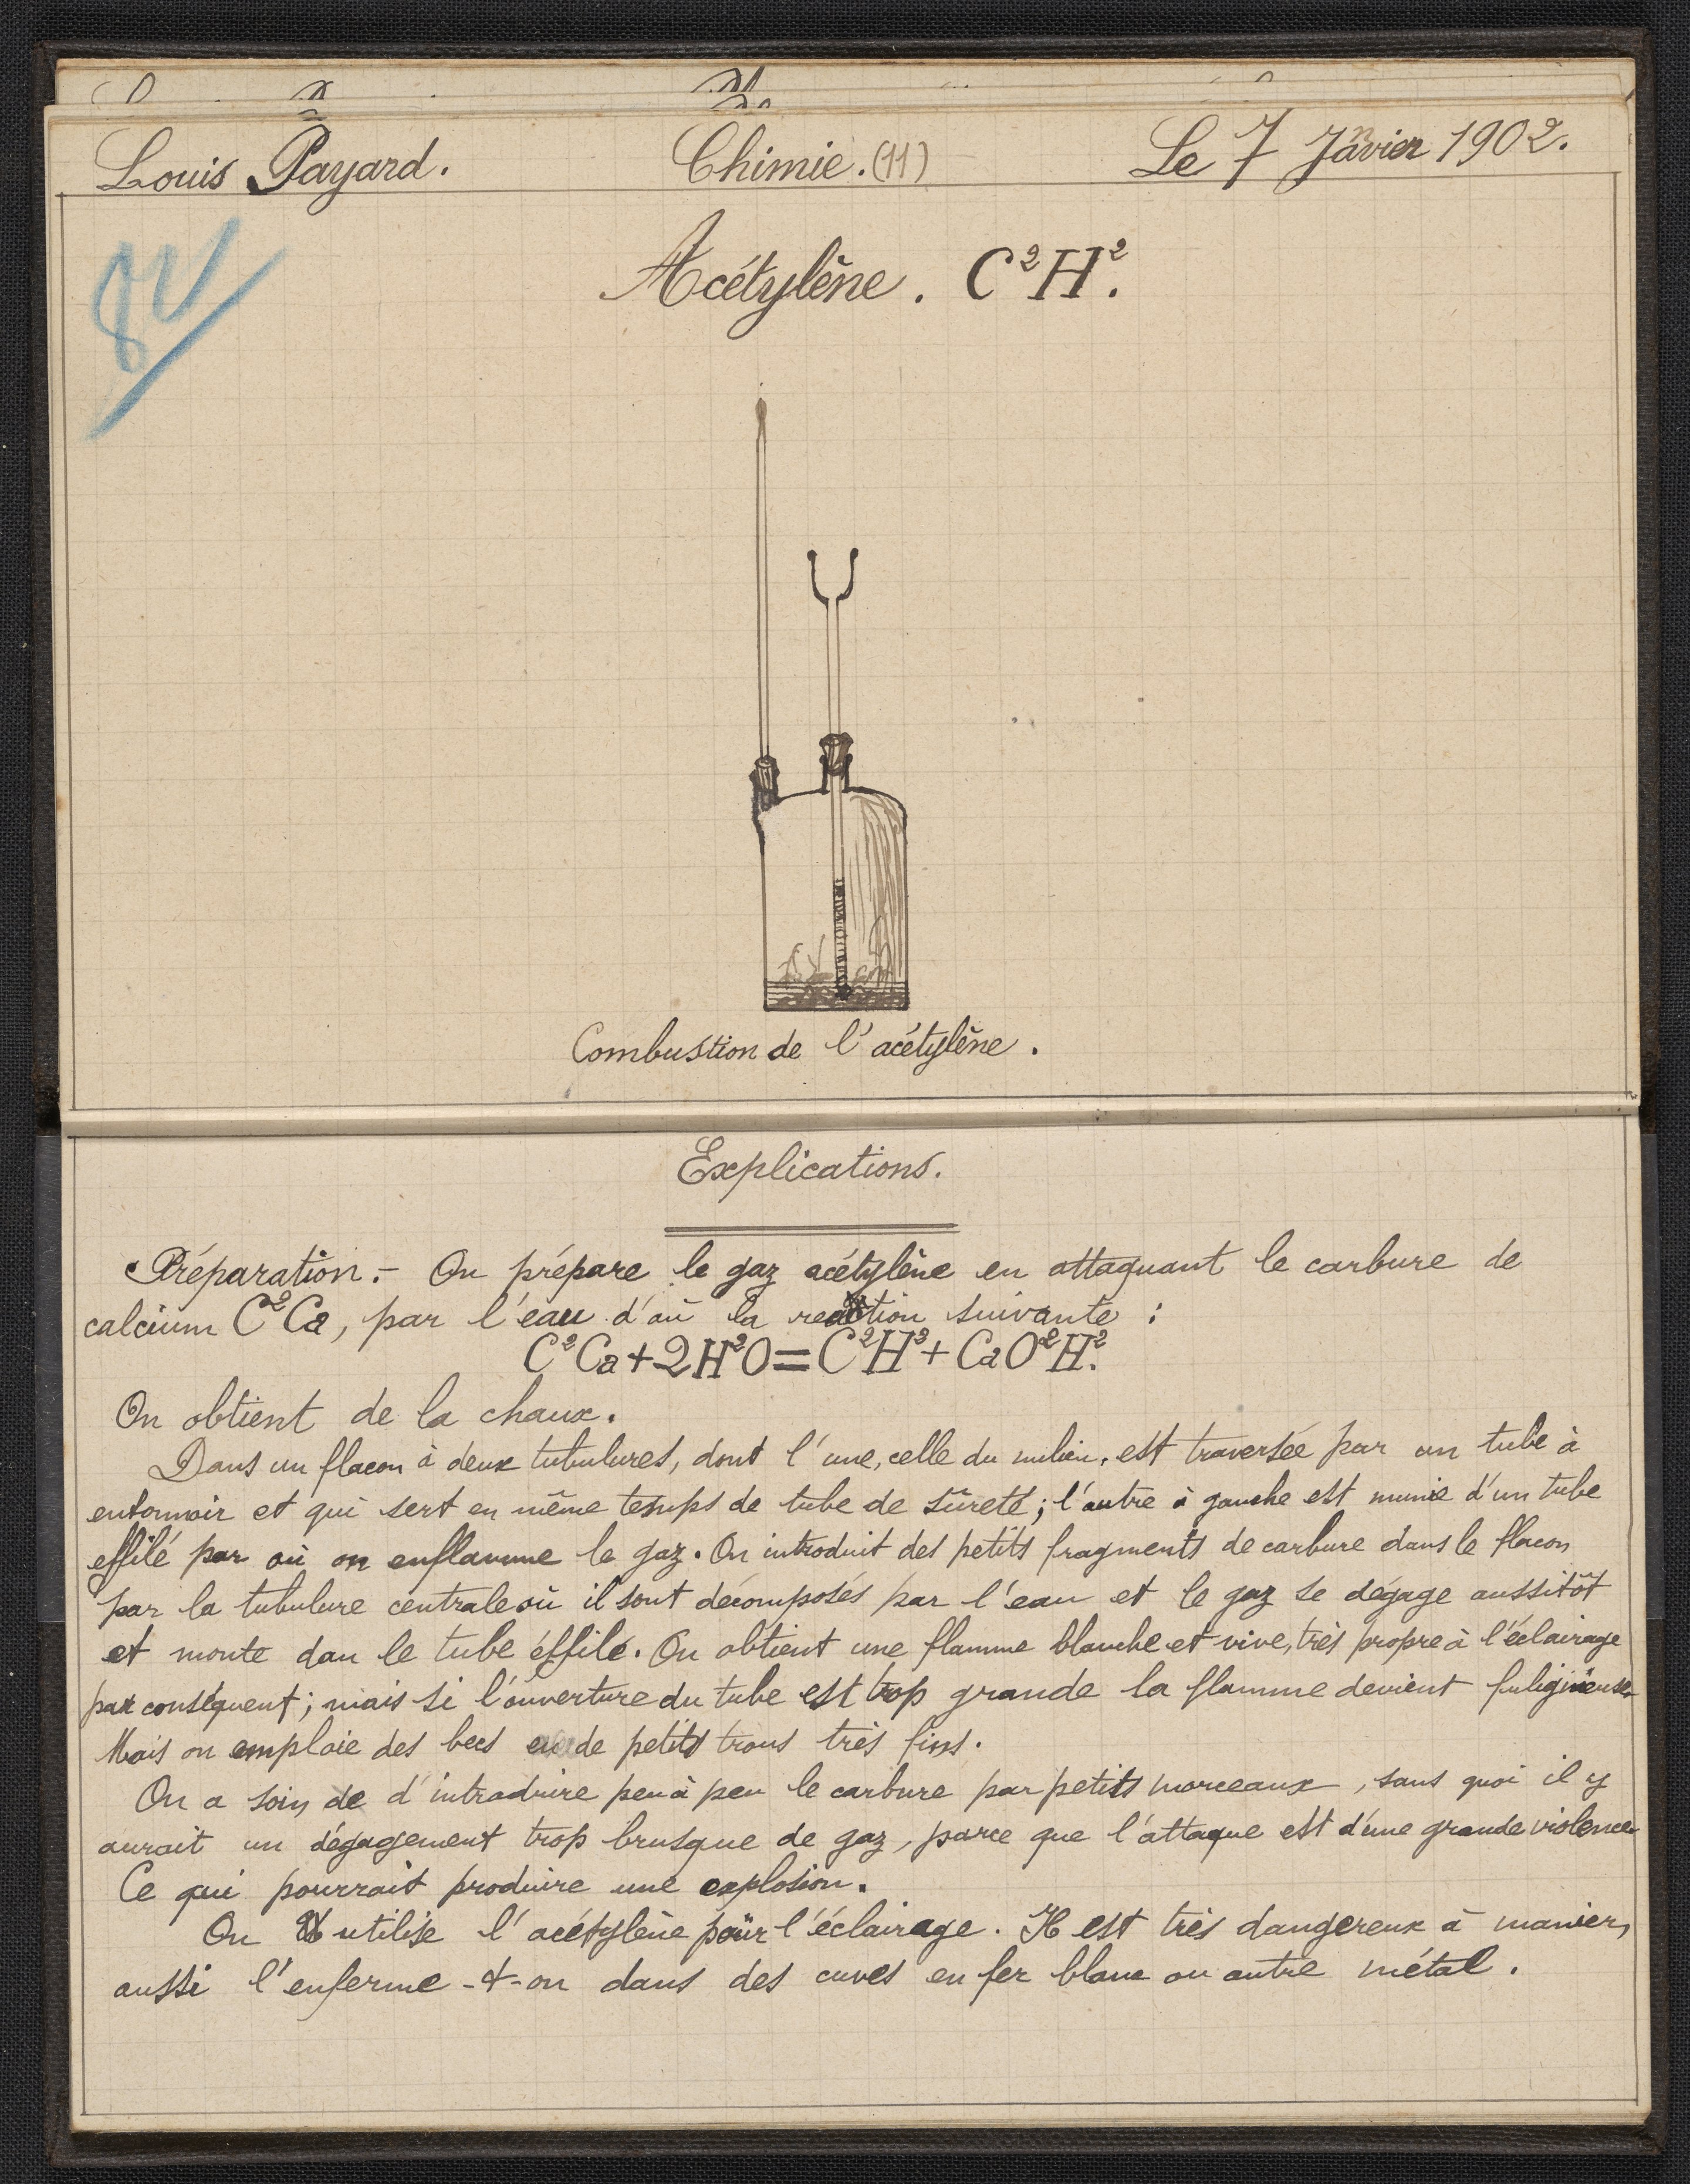 Louis Payard. Chimie. (11) Le 7 Janvier 1902.
Acétylène. C²H².
Combustion de l'acétylène.
Explications.
Préparation.- On prépare le gaz acétylène en attaquant le carbure de
calcium C²Ca, par l'eau d'où la reaction suivante :
C²Ca+2H²O=C²H²+CaO²H².
On obtient de la chaux.
Dans un flacon à deux tubulures, dont l'une, celle du milieu, est traversée par un tube à
entonnoir et qui sert en même temps de tube de sûreté; l'autre à gauche est munie d'un tube
effilé par où on enflamme le gaz. On introduit des petits fragments de carbure dans le flacon
par la tubulure centrale où il sont décomposés par l'eau et le gaz se dégage aussitôt
et monte dan le tube éffilé. On obtient une flamme blanche et vive, très propre à l'éclairage
par conséquent; mais si l'ouverture du tube est trop grande la flamme devient fuligineuse.
Mais on emploie des becs de petits trous très fins.
On a soin de d'introduire peu à peu le carbure par petits morceaux, sans quoi il y
aurait un dégagement trop brusque de gaz, parce que l'attaque est d'une grande violence.
Ce qui pourrait produire une explosion.
On utilise l'acétylène pour l'éclairage. Il est très dangereux à manier,
aussi l'enferme-t-on dans des cuves en fer blanc ou autre métal.